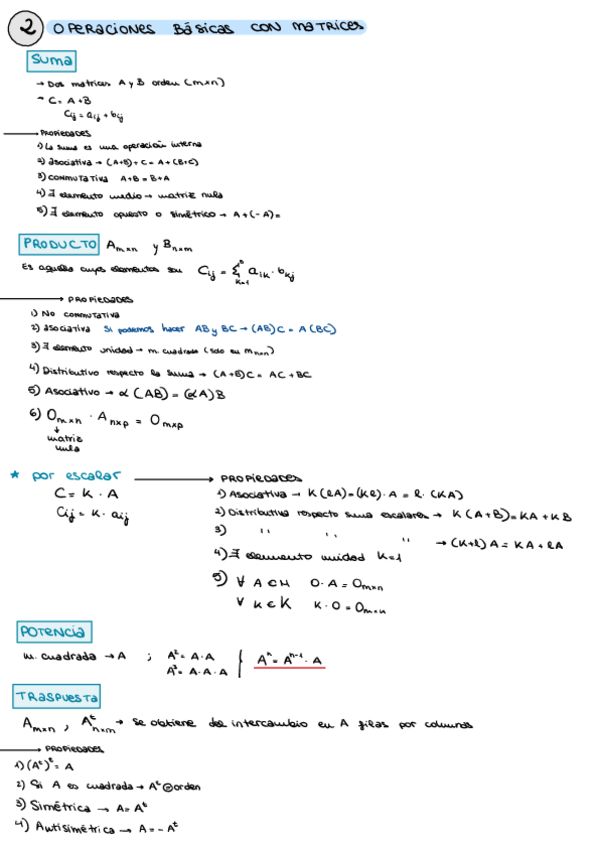 2 OPERACIONES BÁSICAS CON MATRICES
Suma
→ Dos matrices A y B orden (m×n)
- C = A+B
Cij = aij + bij
→ PROPIEDADES
1) La suma es una operación interna
2) Asociativa → (A+B)+C = A+(B+C)
3) CONMUTATIVA A+B = B+A
4) ∃ elemento medio → matriz nula
5) ∃ elemento opuesto o simétrico → A+(-A)=
PRODUCTO Am×n y Bn×m
Es aquella cuyos elementos son Cij = Σ k=1 aik · bkj
→ PROPIEDADES
1) NO CONMUTATIVA
2) Asociativa Si podemos hacer AB y BC → (AB)C = A(BC)
3) ∃ elemento unidad → m. cuadrada (solo en mn×n)
4) Distributivo respecto la suma → (A+B)C = AC + BC
5) Asociativo → α(AB) = (αA)B
6) Om×n · An×p = Om×p
↓
matriz
nula
* por escalar → PROPIEDADES
C = K · A
Cij = K · aij
1) Asociativa → K(lA) = (Kl)·A = l·(KA)
2) Distributiva respecto suma escalares → K(A+B) = KA + KB
3) '' '' '' → (K+l)A = KA + lA
4) ∃ elemento unidad K=1
5) ∀ A ∈ M 0·A = Om×n
∀ k ∈ K K·0 = Om×n
POTENCIA
m. cuadrada → A ; A² = A·A
A³ = A·A·A } Aⁿ = Aⁿ⁻¹ · A
TRASPUESTA
Am×n , Aᵗn×m → Se obtiene de intercambio en A filas por columnas
→ PROPIEDADES
1) (Aᵗ)ᵗ = A
2) Si A es cuadrada → Aᵗ @orden
3) Simétrica → A = Aᵗ
4) Antisimétrica → A = -Aᵗ